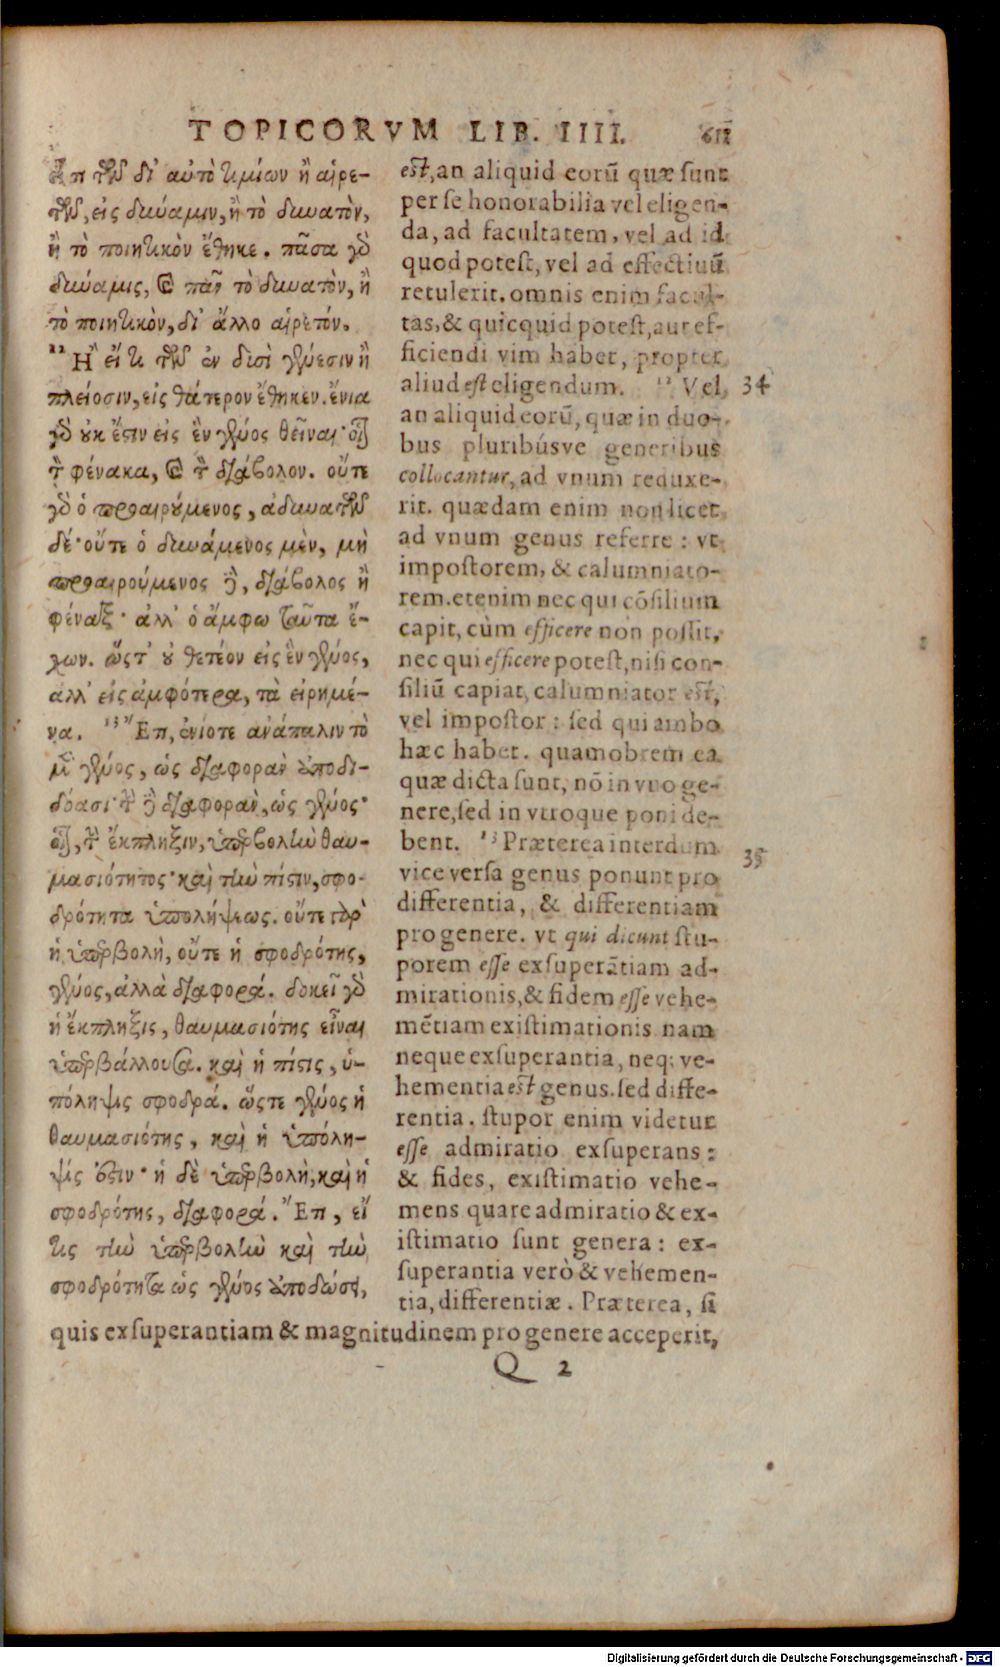 TOPICORVM LIB. IIII. 611
Ἔτι τῶν δι' αὑτὸ τιμίων ἢ αἱρε-
τῶν, εἰς δύναμιν, ἢ τὸ δυνατὸν,
ἢ τὸ ποιητικὸν ἔθηκε. πᾶσα γὸ
δύναμις, καὶ πᾶν τὸ δυνατὸν, ἢ
τὸ ποιητικὸν, δι' ἄλλο αἱρετόν.
12 Ἢ εἴ τι τῶν ἐν δυσὶ γένεσιν ἢ
πλείοσιν, εἰς θάτερον ἔθηκεν. ἔνια
γὸ οὐκ ἔστιν εἰς ἓν γένος θεῖναι· οἷον
τὸν φένακα, καὶ τὸν διάβολον. οὔτε
γὸ ὁ προαιρούμενος, ἀδυνατῶν
δέ· οὔτε ὁ δυνάμενος μὲν, μὴ
προαιρούμενος δὲ, διάβολος ἢ
φέναξ· ἀλλ' ὁ ἄμφω ταῦτα ἔ-
χων. ὥστ' οὐ θετέον εἰς ἓν γένος,
ἀλλ' εἰς ἀμφότερα, τὰ εἰρημέ-
να. 13 Ἔτι, ἐνίοτε ἀνάπαλιν τὸ
μὲν γένος, ὡς διαφορὰν ἀποδι-
δόασι· τὴν δὲ διαφορὰν, ὡς γένος·
οἷον, τὴν ἔκπληξιν, ὑπερβολὴν θαυ-
μασιότητος· καὶ τὴν πίστιν, σφο-
δρότητα ὑπολήψεως. οὔτε γὰρ
ἡ ὑπερβολὴ, οὔτε ἡ σφοδρότης,
γένος, ἀλλὰ διαφορά. δοκεῖ γὸ
ἡ ἔκπληξις, θαυμασιότης εἶναι
ὑπερβάλλουσα. καὶ ἡ πίστις, ὑ-
πόληψις σφοδρά. ὥστε γένος ἡ
θαυμασιότης, καὶ ἡ ὑπόλη-
ψίς ἐστιν· ἡ δὲ ὑπερβολὴ, καὶ ἡ
σφοδρότης, διαφορά. Ἔτι, εἴ
τις τὴν ὑπερβολὴν καὶ τὴν
σφοδρότητα ὡς γένος ἀποδώσει,
est, an aliquid eorũ quæ sunt
per se honorabilia vel eligen-
da, ad facultatem, vel ad id
quod potest, vel ad effectiuũ
retulerit. omnis enim facul-
tas, & quicquid potest, aut ef-
ficiendi vim habet, propter
aliud est eligendum. 12 Vel 34
an aliquid eorũ, quæ in duo-
bus pluribúsve generibus
collocantur, ad vnum reduxe-
rit. quædam enim non licet
ad vnum genus referre: vt
impostorem, & calumniato-
rem. etenim nec qui cõsilium
capit, cùm efficere non possit,
nec qui efficere potest, nisi con-
siliũ capiat, calumniator est,
vel impostor: sed qui ambo
hæc habet. quamobrem ea
quæ dicta sunt, nõ in vno ge-
nere, sed in vtroque poni de-
bent. 13 Præterea interdum 35
vice versa genus ponunt pro
differentia, & differentiam
pro genere. vt qui dicunt stu-
porem esse exsuperãtiam ad-
mirationis, & fidem esse vehe-
mẽtiam existimationis nam
neque exsuperantia, neq; ve-
hementia est genus. sed diffe-
rentia. stupor enim videtur
esse admiratio exsuperans:
& fides, existimatio vehe-
mens quare admiratio & ex-
istimatio sunt genera: ex-
superantia verò & vehemen-
tia, differentiæ. Præterea, si
quis exsuperantiam & magnitudinem pro genere acceperit,
Q 2
Digitalisierung gefördert durch die Deutsche Forschungsgemeinschaft - DFG